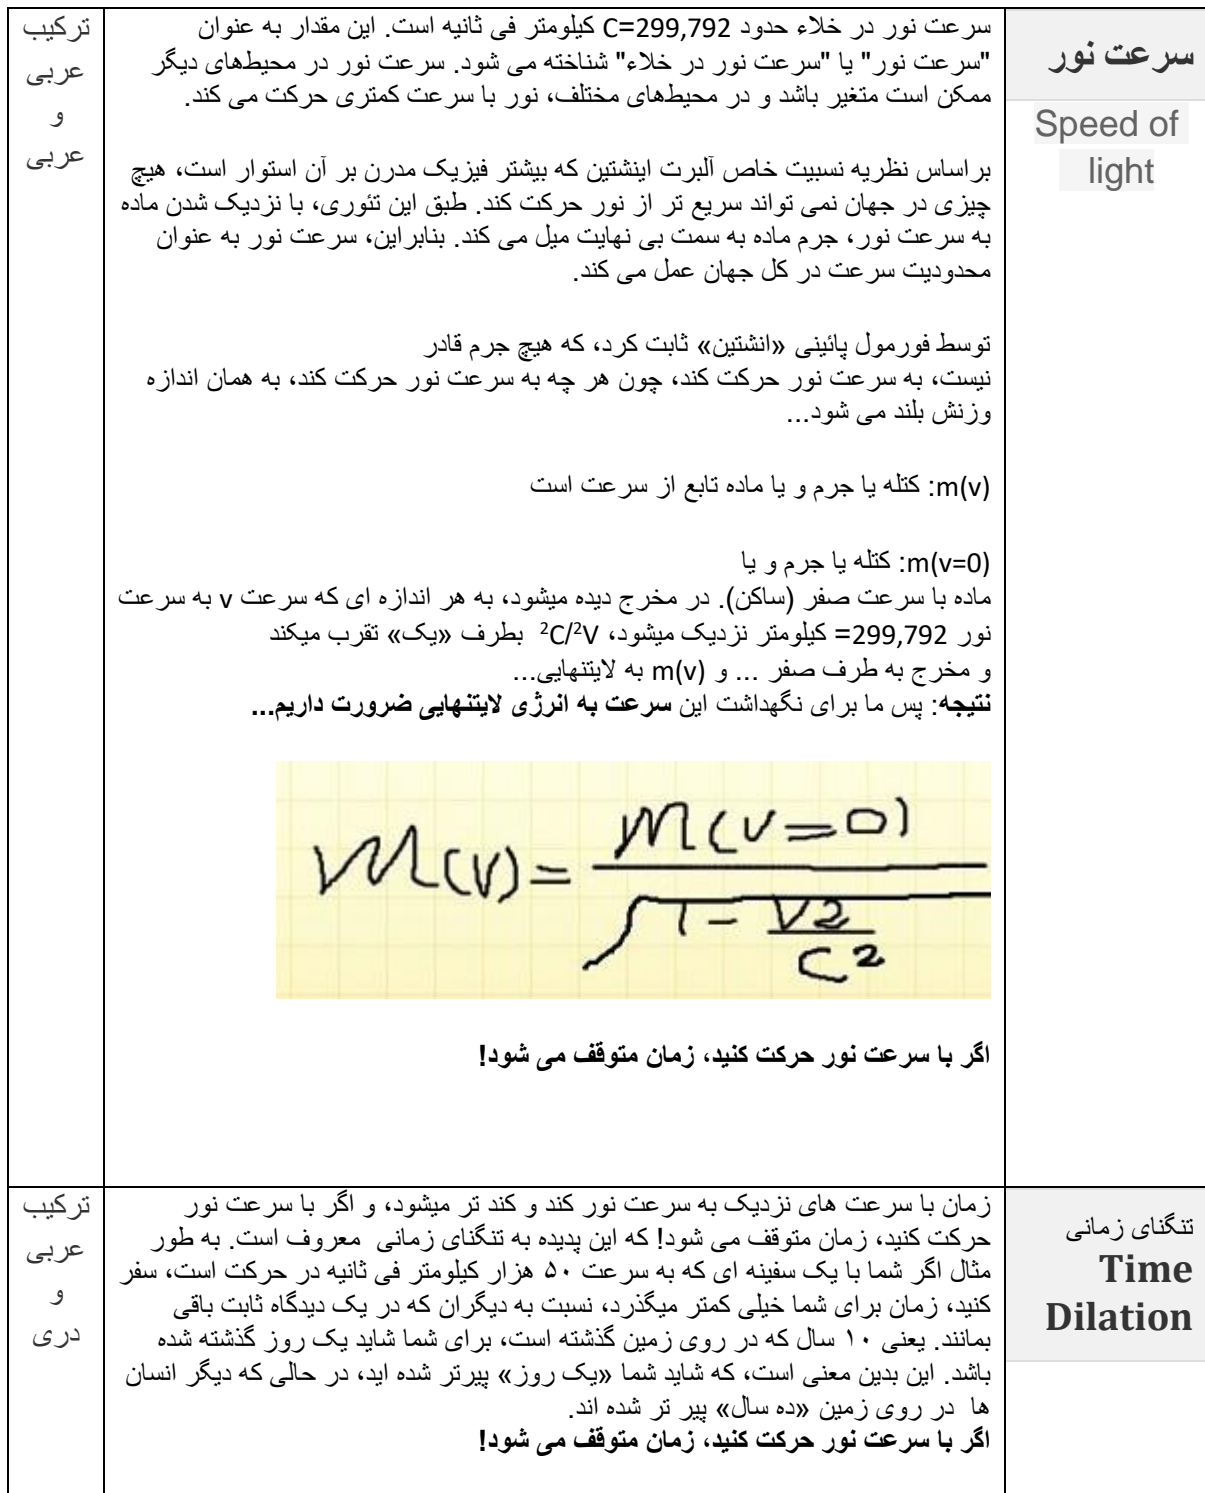 سرعت نور
Speed of
light
سرعت نور در خلاء حدود C=299,792 کیلومتر فی ثانیه است. این مقدار به عنوان
"سرعت نور" یا "سرعت نور در خلاء" شناخته می شود. سرعت نور در محیط‌های دیگر
ممکن است متغیر باشد و در محیط‌های مختلف، نور با سرعت کمتری حرکت می کند.
براساس نظریه نسبیت خاص آلبرت اینشتین که بیشتر فیزیک مدرن بر آن استوار است، هیچ
چیزی در جهان نمی تواند سریع تر از نور حرکت کند. طبق این تئوری، با نزدیک شدن ماده
به سرعت نور، جرم ماده به سمت بی نهایت میل می کند. بنابراین، سرعت نور به عنوان
محدودیت سرعت در کل جهان عمل می کند.
توسط فورمول پائینی «انشتین» ثابت کرد، که هیچ جرم قادر
نیست، به سرعت نور حرکت کند، چون هر چه به سرعت نور حرکت کند، به همان اندازه
وزنش بلند می شود...
m(v): کتله یا جرم و یا ماده تابع از سرعت است
m(v=0): کتله یا جرم و یا
ماده با سرعت صفر (ساکن). در مخرج دیده میشود، به هر اندازه ای که سرعت v به سرعت
نور 299,792= کیلومتر نزدیک میشود، ²C/²V بطرف «یک» تقرب میکند
و مخرج به طرف صفر ... و m(v) به لایتنهایی...
نتیجه: پس ما برای نگهداشت این سرعت به انرژی لایتنهایی ضرورت داریم...
M(V) = M(V=0) / √(1 - V2/C2)
اگر با سرعت نور حرکت کنید، زمان متوقف می شود!
ترکیب
عربی
و
عربی
تنگنای زمانی
Time
Dilation
زمان با سرعت های نزدیک به سرعت نور کند و کند تر میشود، و اگر با سرعت نور
حرکت کنید، زمان متوقف می شود! که این پدیده به تنگنای زمانی معروف است. به طور
مثال اگر شما با یک سفینه ای که به سرعت ۵۰ هزار کیلومتر فی ثانیه در حرکت است، سفر
کنید، زمان برای شما خیلی کمتر میگذرد، نسبت به دیگران که در یک دیدگاه ثابت باقی
بمانند. یعنی ۱۰ سال که در روی زمین گذشته است، برای شما شاید یک روز گذشته شده
باشد. این بدین معنی است، که شاید شما «یک روز» پیرتر شده اید، در حالی که دیگر انسان
ها در روی زمین «ده سال» پیر تر شده اند.
اگر با سرعت نور حرکت کنید، زمان متوقف می شود!
ترکیب
عربی
و
دری